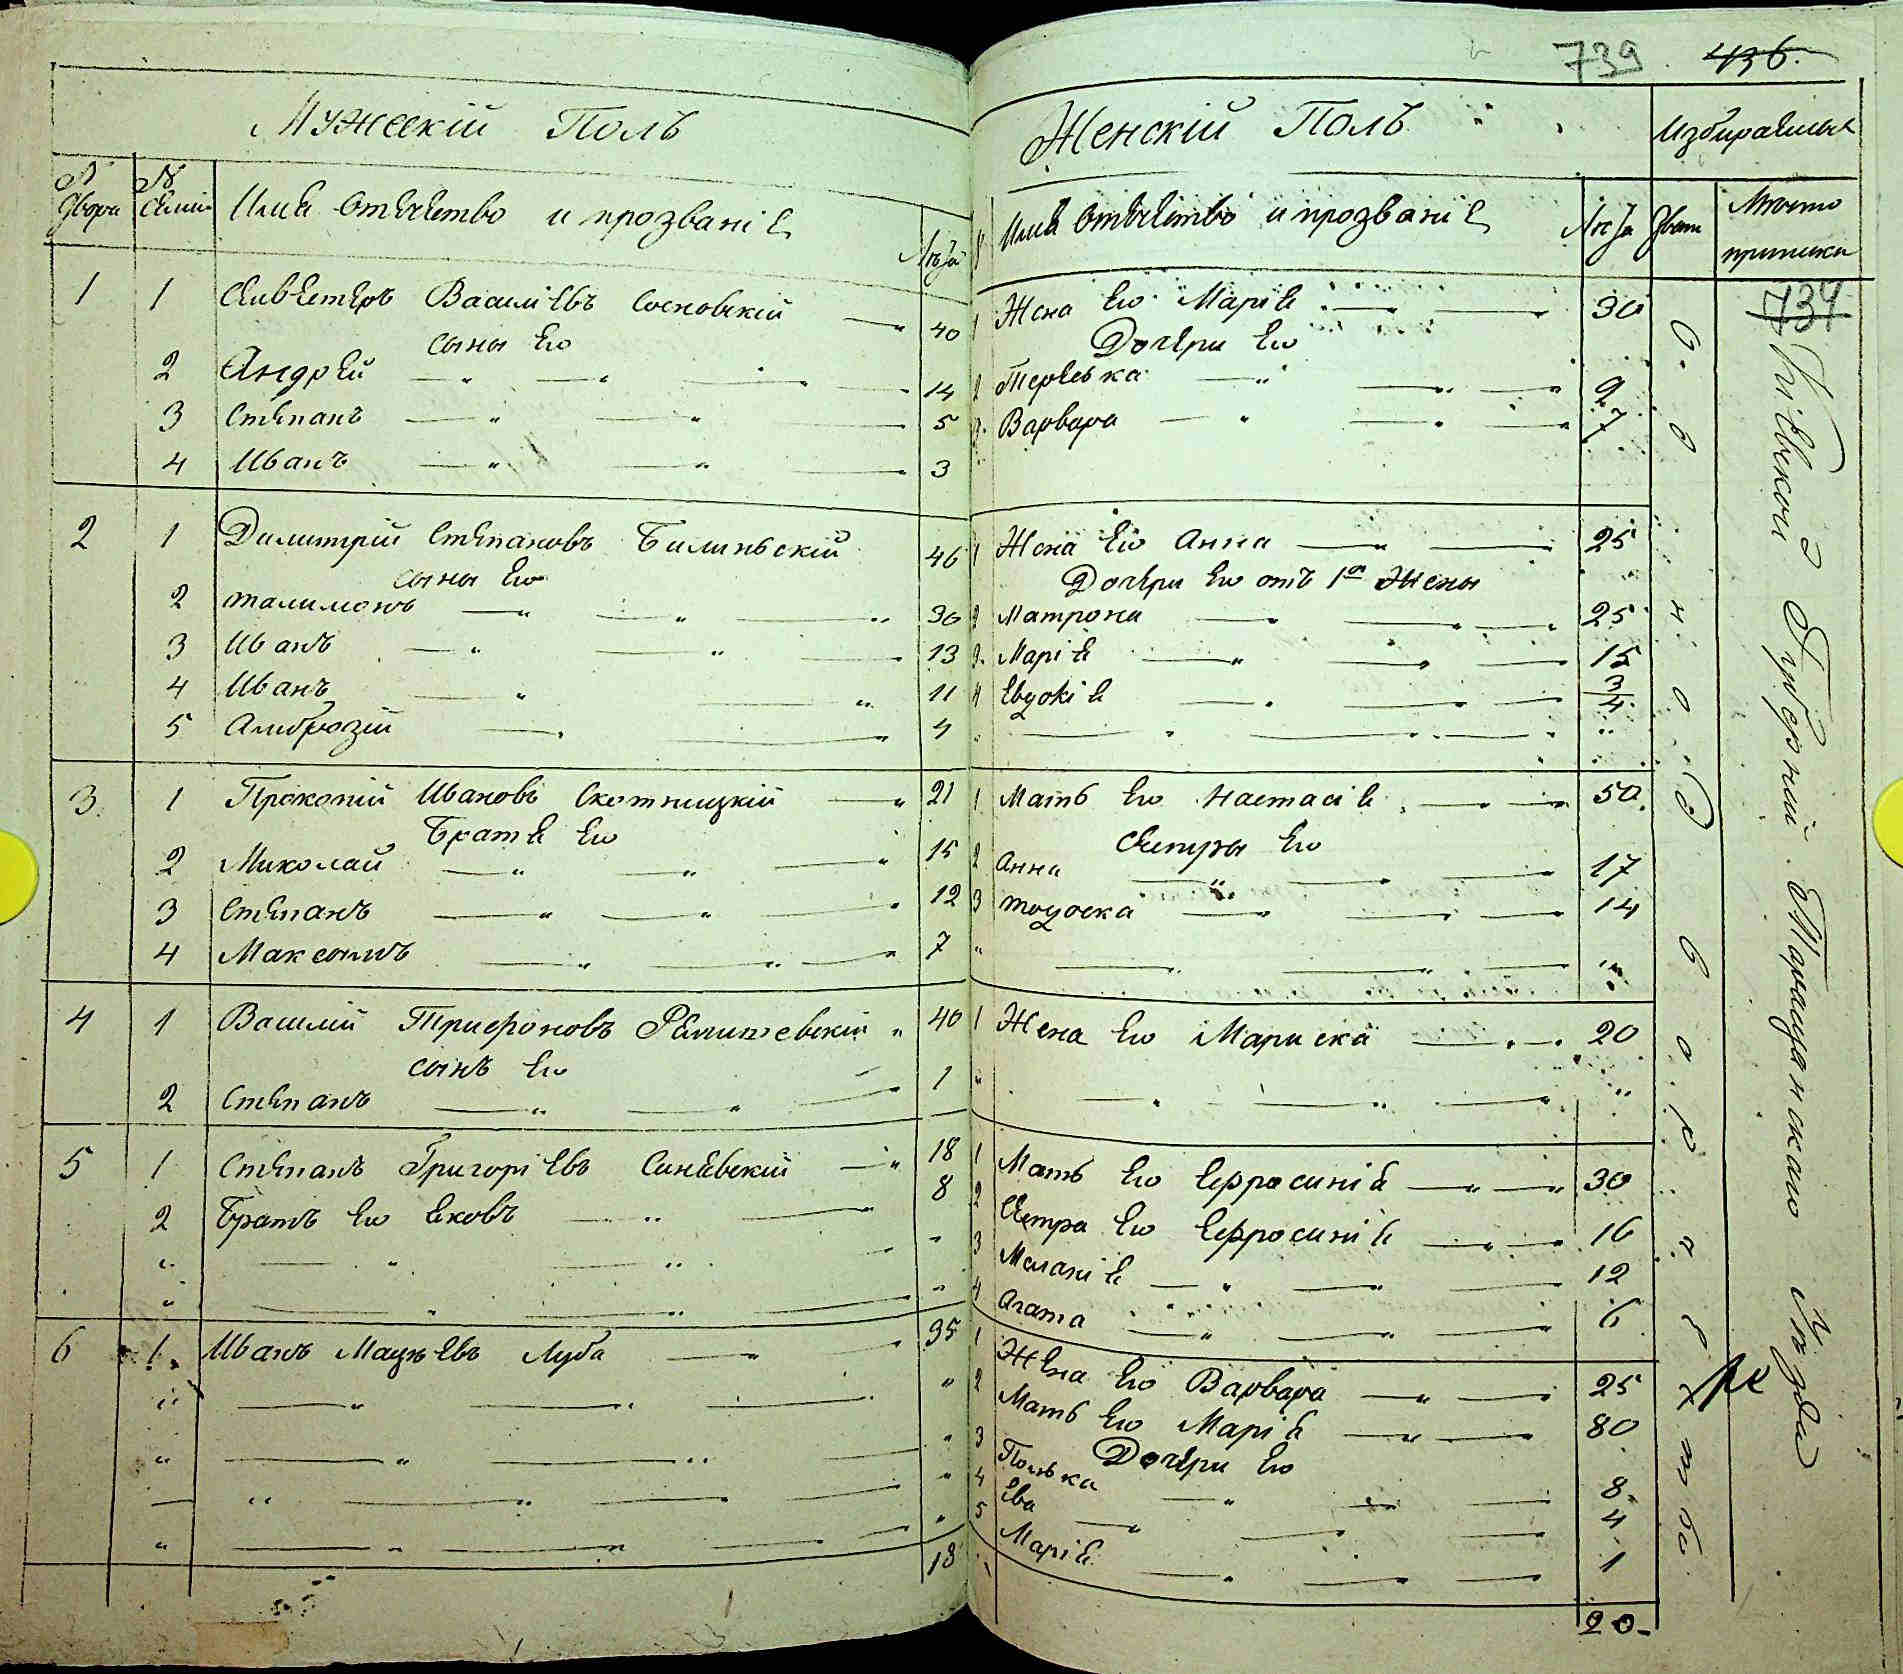 739 436.
Мужескій Полъ
№ двора № семьи Имя Отечество и прозваніе Лѣта
1 1 Сивестеръ Василіевъ Сосновскій 40
сыны Его
2 Андрей 14
3 Степанъ 5
4 Иванъ 3
2 1 Димитрій Степановъ Билиньскій 46
сыны Его
2 Талимонъ 30
3 Иванъ 13
4 Иванъ 11
5 Амброзій 4
3 1 Прокопій Ивановъ Скотницкій 21
Братя Его
2 Миколай 15
3 Степанъ 12
4 Максымъ 7
4 1 Василій Трифоновъ 40
сынъ Его
2 Степанъ 1
5 1 Степанъ Григоріевъ Синевскій 18
2 Братъ Его Яковъ 8
6 1 Иванъ Мацѣевъ Луба 35
18
Женскій Полъ
Имя Отечество и прозваніе Лѣта
1 Жена Его Марія 30
Дочери Его
2 Теревка 9
3 Варвара 7
1 Жена Его Анна 25
Дочери Его отъ 1й Жены
2 Матрона 25
3 Марія 15
4 Евдокія 3/4
1 Мать Его Настасія 50
Сестры Его
2 Анна 17
3 Тодоска 14
1 Жена Его Мариска 20
1 Мать Его Ефросинія 30
2 Сестра Его Ефросинія 16
3 Меланія 12
4 Агата 6
1 Жена Его Варвара 25
2 Мать Его Марія 80
Дочери Его
3 Полька 8
4 Ева 4
5 Марія 1
20
Избираемые
Званіе Мѣсто приписки
Однодворчество
734
Кіевской Губерніи Таращанскаго Уѣзда